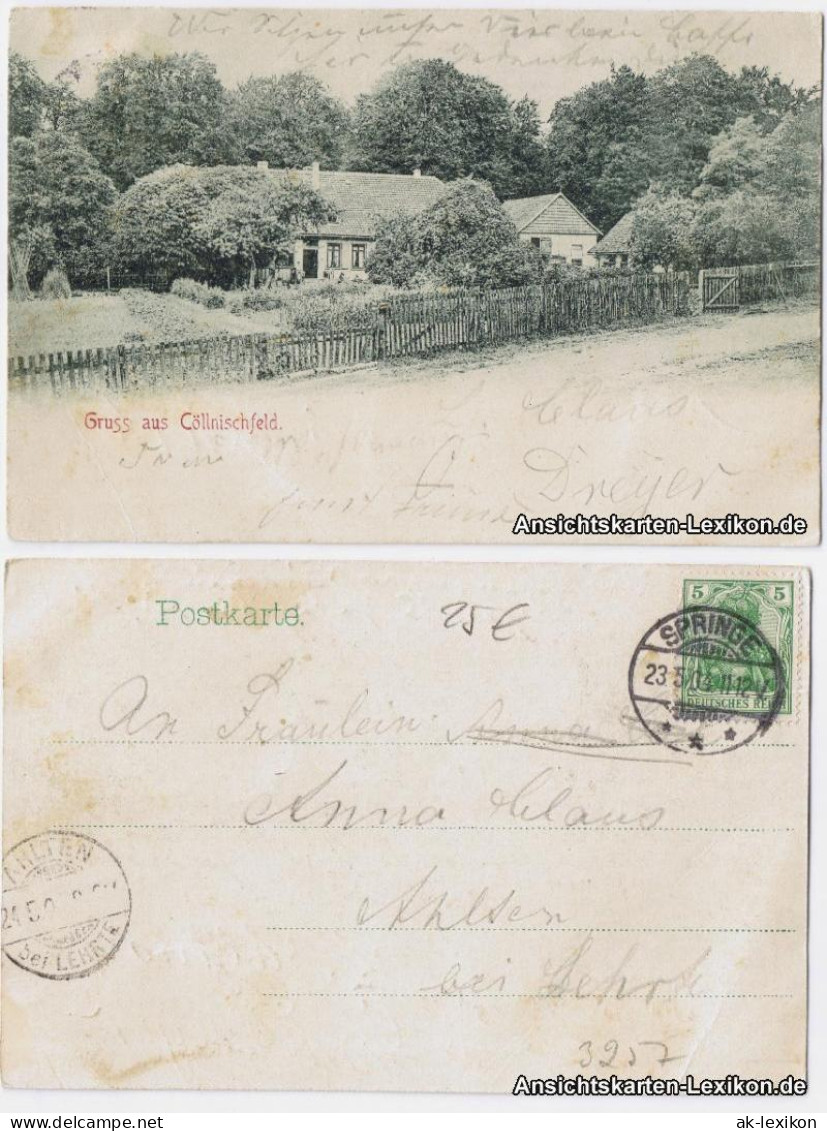 Wir Sitzen unser Vier beim Caffe
Gruss aus Cöllnischfeld.
L. Claus
Dreyer
Ansichtskarten-Lexikon.de
Postkarte.
25 €
5 5
DEUTSCHES REI
SPRINGE
23.5.04.11-12
An Fräulein Anna
Anna Claus
Ahlten
bei Lehrte
AHLTEN
24.5.0
bei LEHRTE
3257
Ansichtskarten-Lexikon.de
www.delcampe.net
ak-lexikon